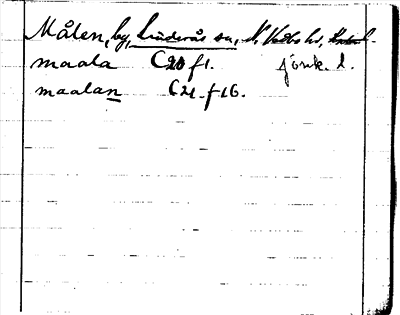 Målen, by, Linderås sn, N. Vedbo hd,
maala C20 f1. jönk. l.
maalan C21. f16.